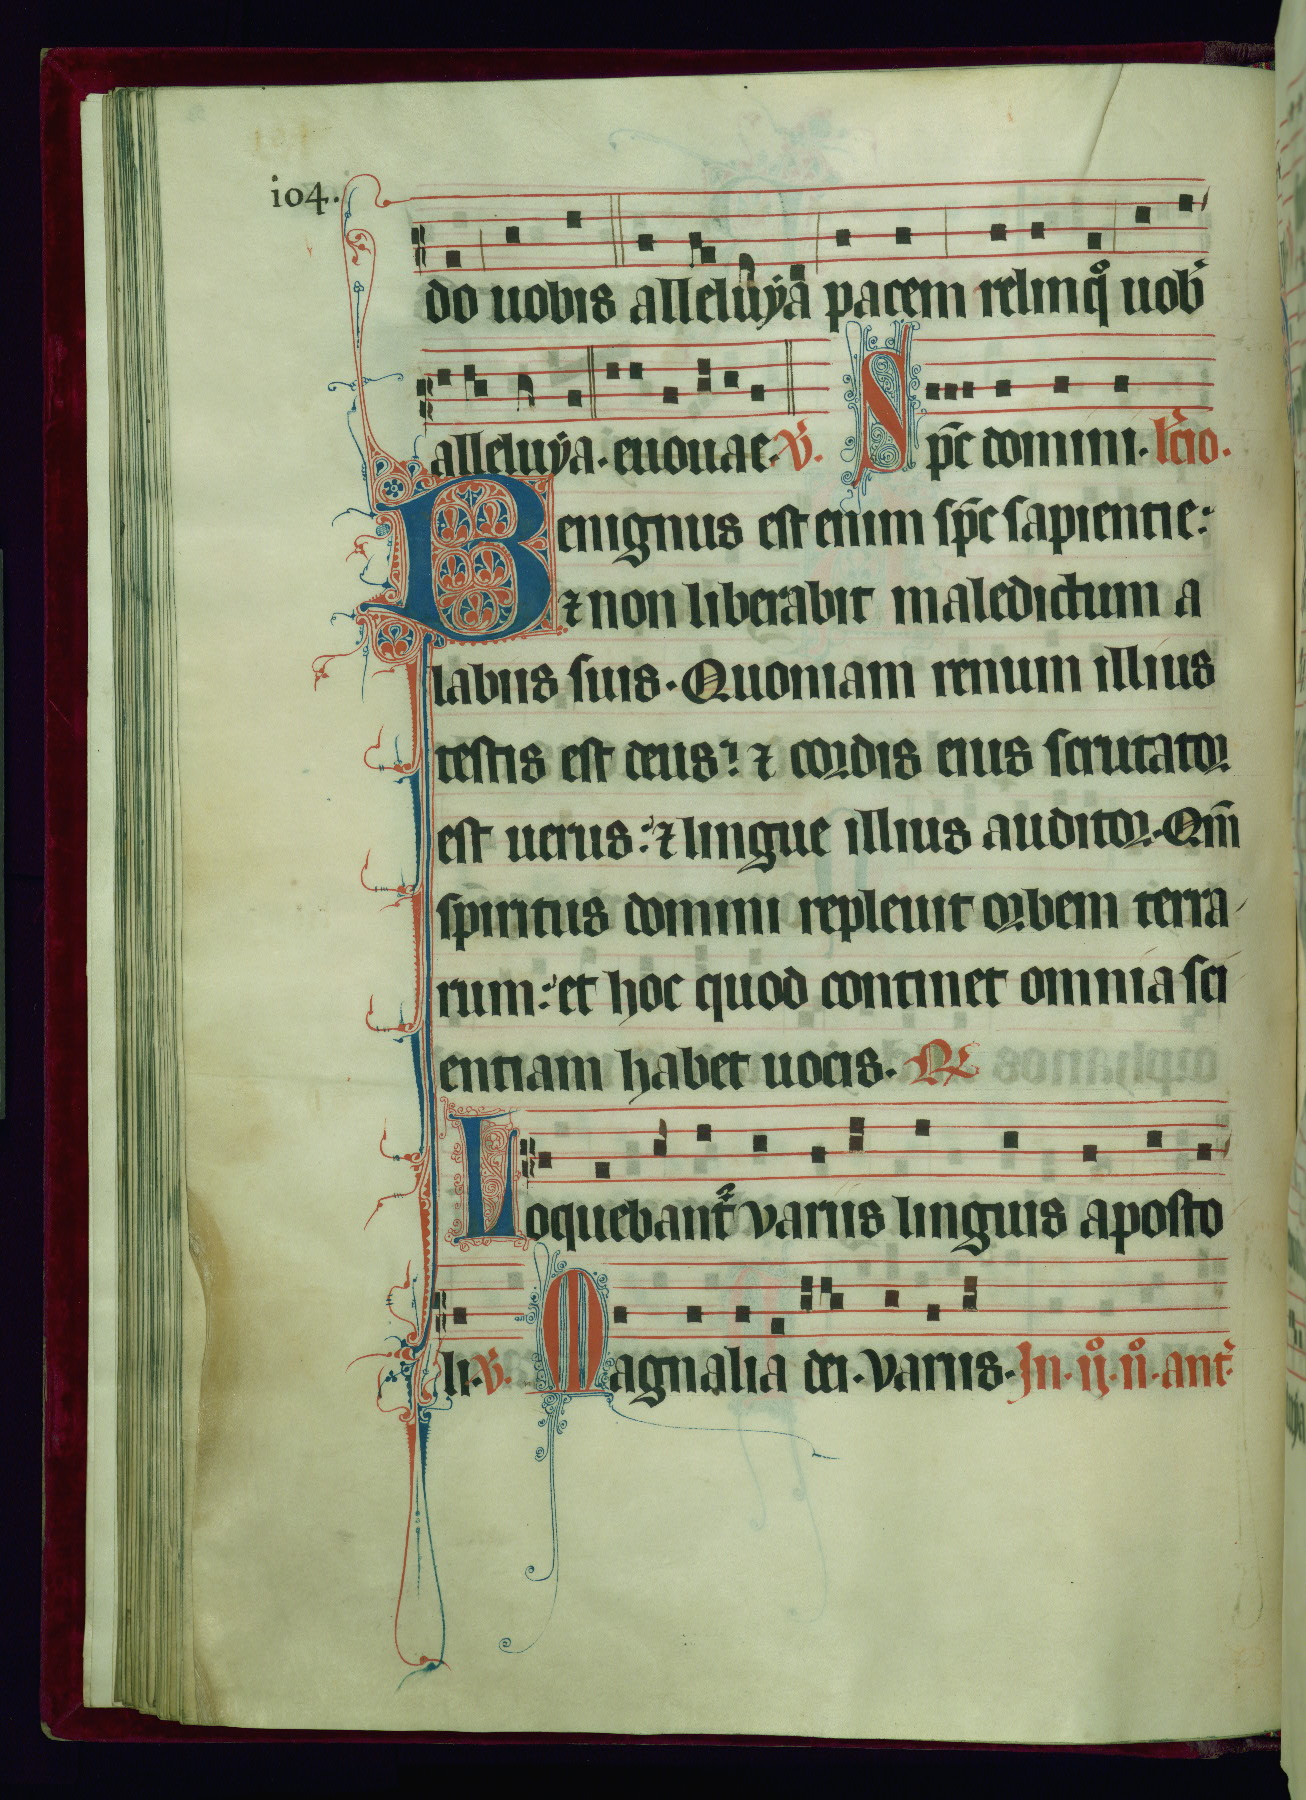 104.
do uobis alleluẏa pacem relinq̊ uob᷒
alleluẏa. euouae. V᷒. Sp̄c domini. lc̄io.
Benignus est enim sp̄c sapientie:
⁊ non liberabit maledictum a
labiis suis. Quoniam renum illius
testis est deus: ⁊ cordis eius scrutator
est uerus: ⁊ lingue illius auditor. Qm̄
spiritus domini repleuit orbem terra
rum: et hoc quod continet omnia sci
entiam habet uocis. ℟
Loquebant᷑ variis linguis aposto
li. V᷒. Magnalia dei. variis. In. ij̊. n̊. ant᷒.